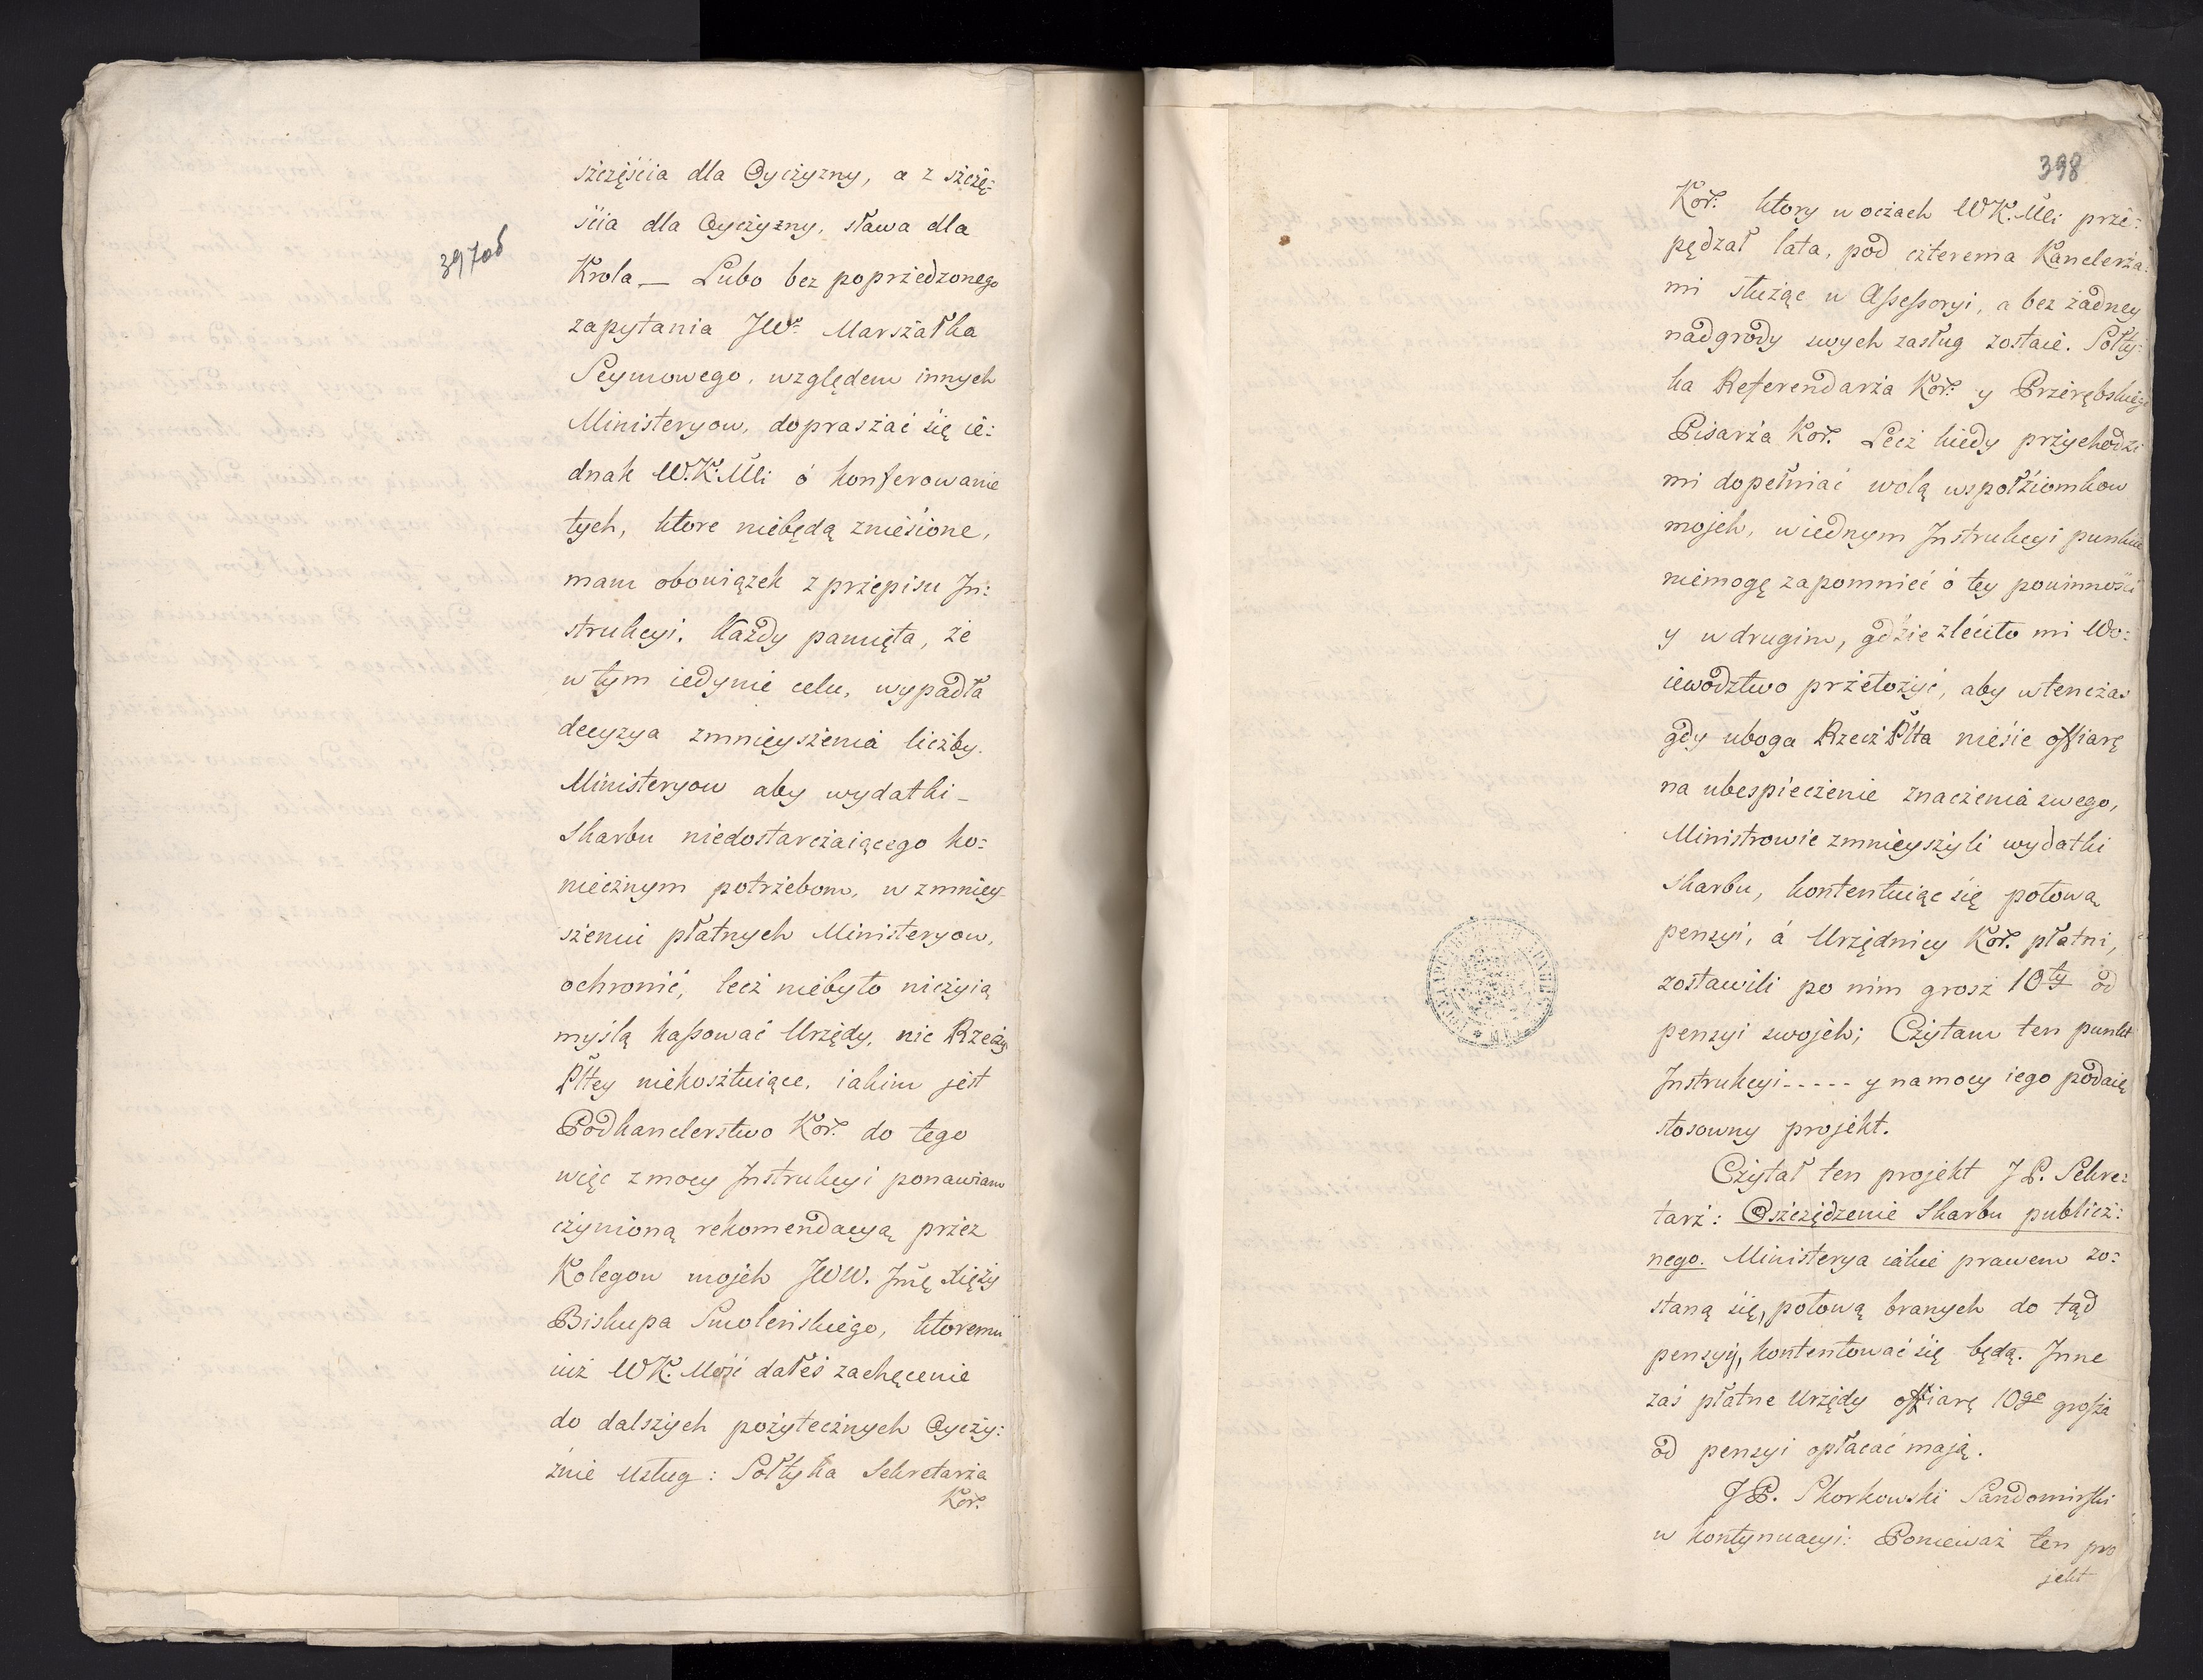 397об
szczęścia dla Oyczyzny, a z szczę:
ścia dla Oyczyzny, sława dla
Krola — Lubo bez poprzedzonego
zapytania JWo. Marszałka
Seymowego, względem innych
Ministeryow, dopraszać się ie:
dnak W.K.Mci ó konferowanie
tych, ktore niebędą zniesione,
mam obowiązek z przepisu In:
strukcyi. Każdy pamięta, że
w tym iedynie celu, wypadła
decyzya zmnieyszenia liczby.
Ministeryow aby wydatki _
Skarbu niedostarczaiącego ko:
niecznym potrzebom, w zmniey
szeniu płatnych Ministeryow,
ochronić, lecz niebyło niczyią
myślą kassować Urzędy, nic Rzeczy
Pltey niekosztuiące, iakim jest
Podkanclerstwo Kor. do tego
więc z mocy Instrukcyi ponawiam
czynioną rekomendacyą przez
Kolegow mojch JWW. Jmę Xięży
Biskupa Smoleńskiego, ktoremu
iuż WK. Mość dałeś zachęcenie
do dalszych pożytecznych Oyczy:
znie usług: Sołtyka Sekretarza
Kor.
398
Kor. ktory w oczach WK.Mci prze:
pędzał lata, pod czterema Kanclerza:
mi służąc w Assessoryi, a bez żadney
nadgrody swych zasług zostaie. Sołty:
ka Referendarza Kor. y Przerębskiego
Pisarza Kor. Lecz kiedy przychodzi
mi dopełniać wolą wspołziomkow
mojch, w iednym Instrukcyi punkcie
niemogę zapomnieć ó tey powinności
y w drugim, gdzie zleciło mi Wo:
iewodztwo przełożyć, aby wtenczas
gdy uboga Rzecz Plta niesie offiarę
na ubespieczenie znaczenia swego,
Ministrowie zmnieyszyli wydatki
skarbu, kontentuiąc się połową
pensyi, á Urzędnicy Kor. płatni,
zostawili po nim grosz 10ty od
pensyi swojch; Czytam ten punkt
Instrukcyi ----- y na mocy iego podaię
stosowny projekt.
Czytał ten projekt J P. Sekre:
tarz: Oszczędzenie Skarbu publicz:
nego. Ministerya iakie prawem zo:
staną się, połową branych do tąd
pensyj, kontentować się będą. Inne
zaś płatne Urzędy offiarę 10go grosza
od pensyi opłacać mają.
JP. Skorkowski Sandomirski
w kontynuacyi: Ponieważ ten pro
jekt